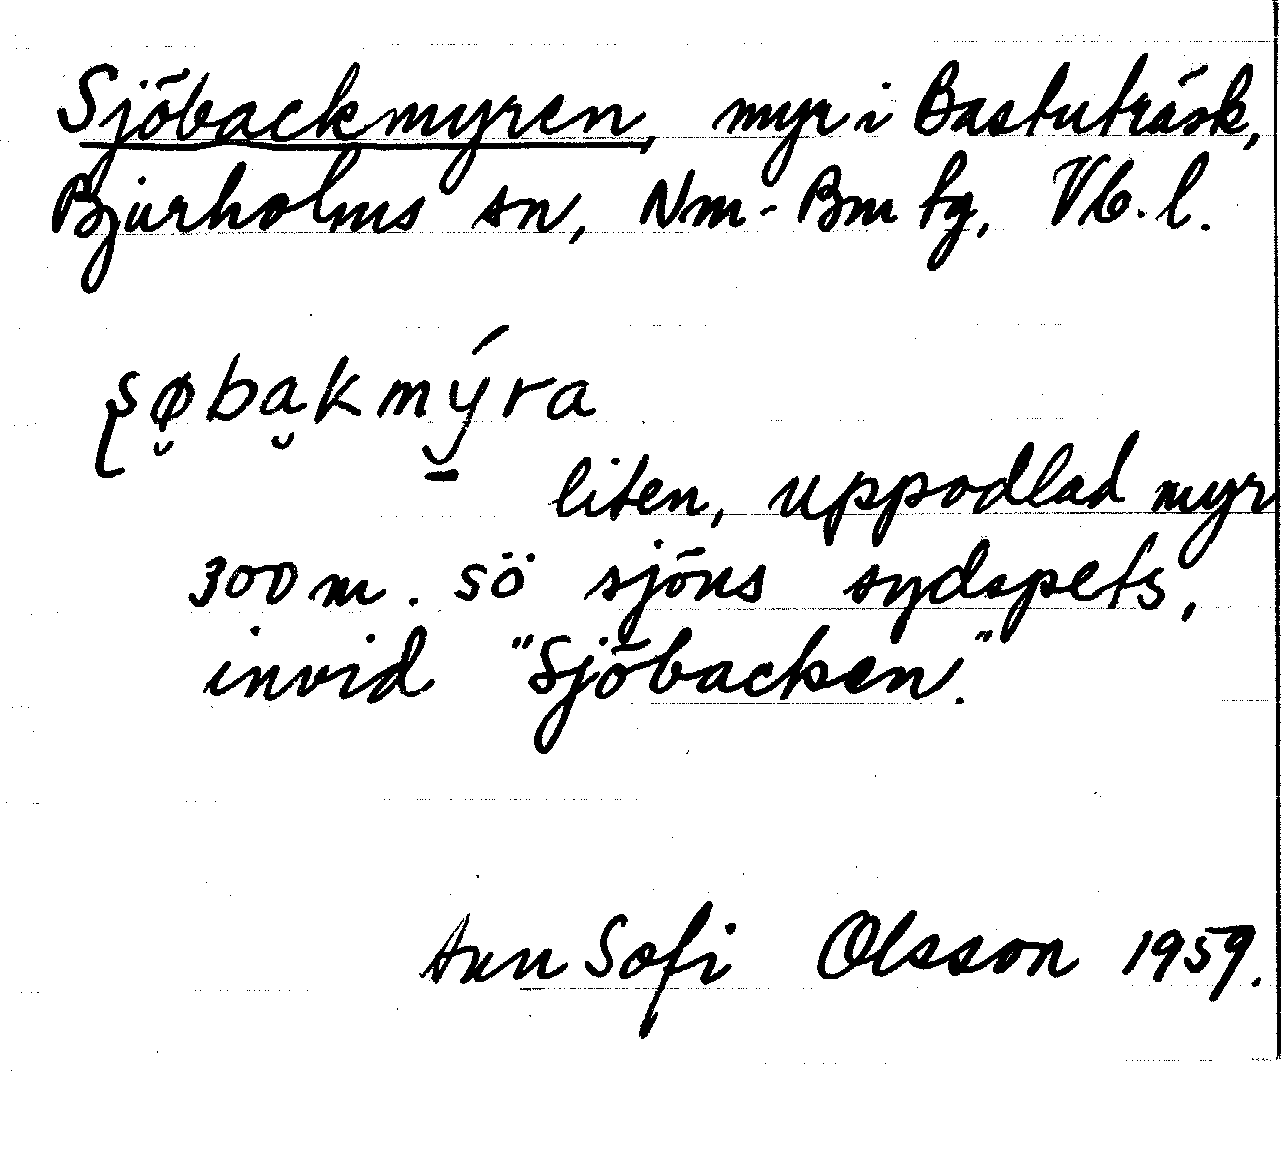 Sjöbackmyren, myr i Bastuträsk,
Bjurholms sn, Nm-Bm tg, Vb. l.
ʂø̮ba̮kmý̠ra
liten, uppodlad myr
300 m. sö sjöns sydspets,
invid "Sjöbacken".
Ann Sofi Olsson 1959.